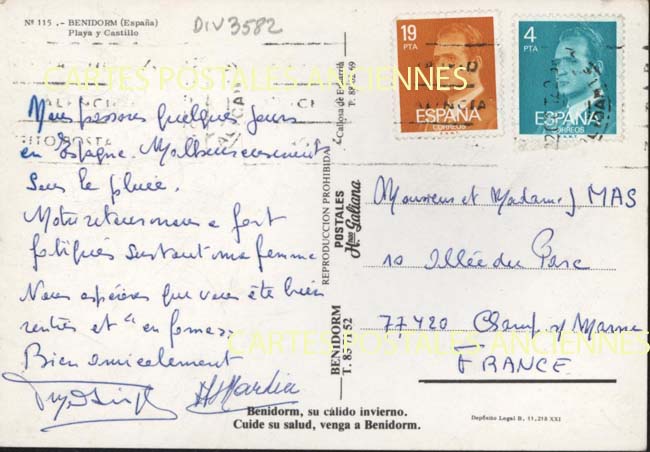 Nº 115 .- BENIDORM (España)
Playa y Castillo
DIV3582
19
PTA
ESPAÑA
CORREOS
4
PTA
ESPAÑA
CORREOS
CARTES POSTALES ANCIENNES
Nous passons quelques jours
en Espagne. Malheureusement
sous la pluie.
Notre retour nous a fort
fatigués surtout ma femme
Nous espérons que vous êtes bien
rentrés et "en forme".
Bien amicalement
Benidorm, su cálido invierno.
Cuide su salud, venga a Benidorm.
BENIDORM
REPRODUCCION PROHIBIDA
POSTALES
Hnos Galiana
Monsieur et Madame J MAS
10 Allée du Parc
77420 Champ s/ Marne
FRANCE
CARTES POSTALES ANCIENNES
Depósito Legal B. 11,218 XXI